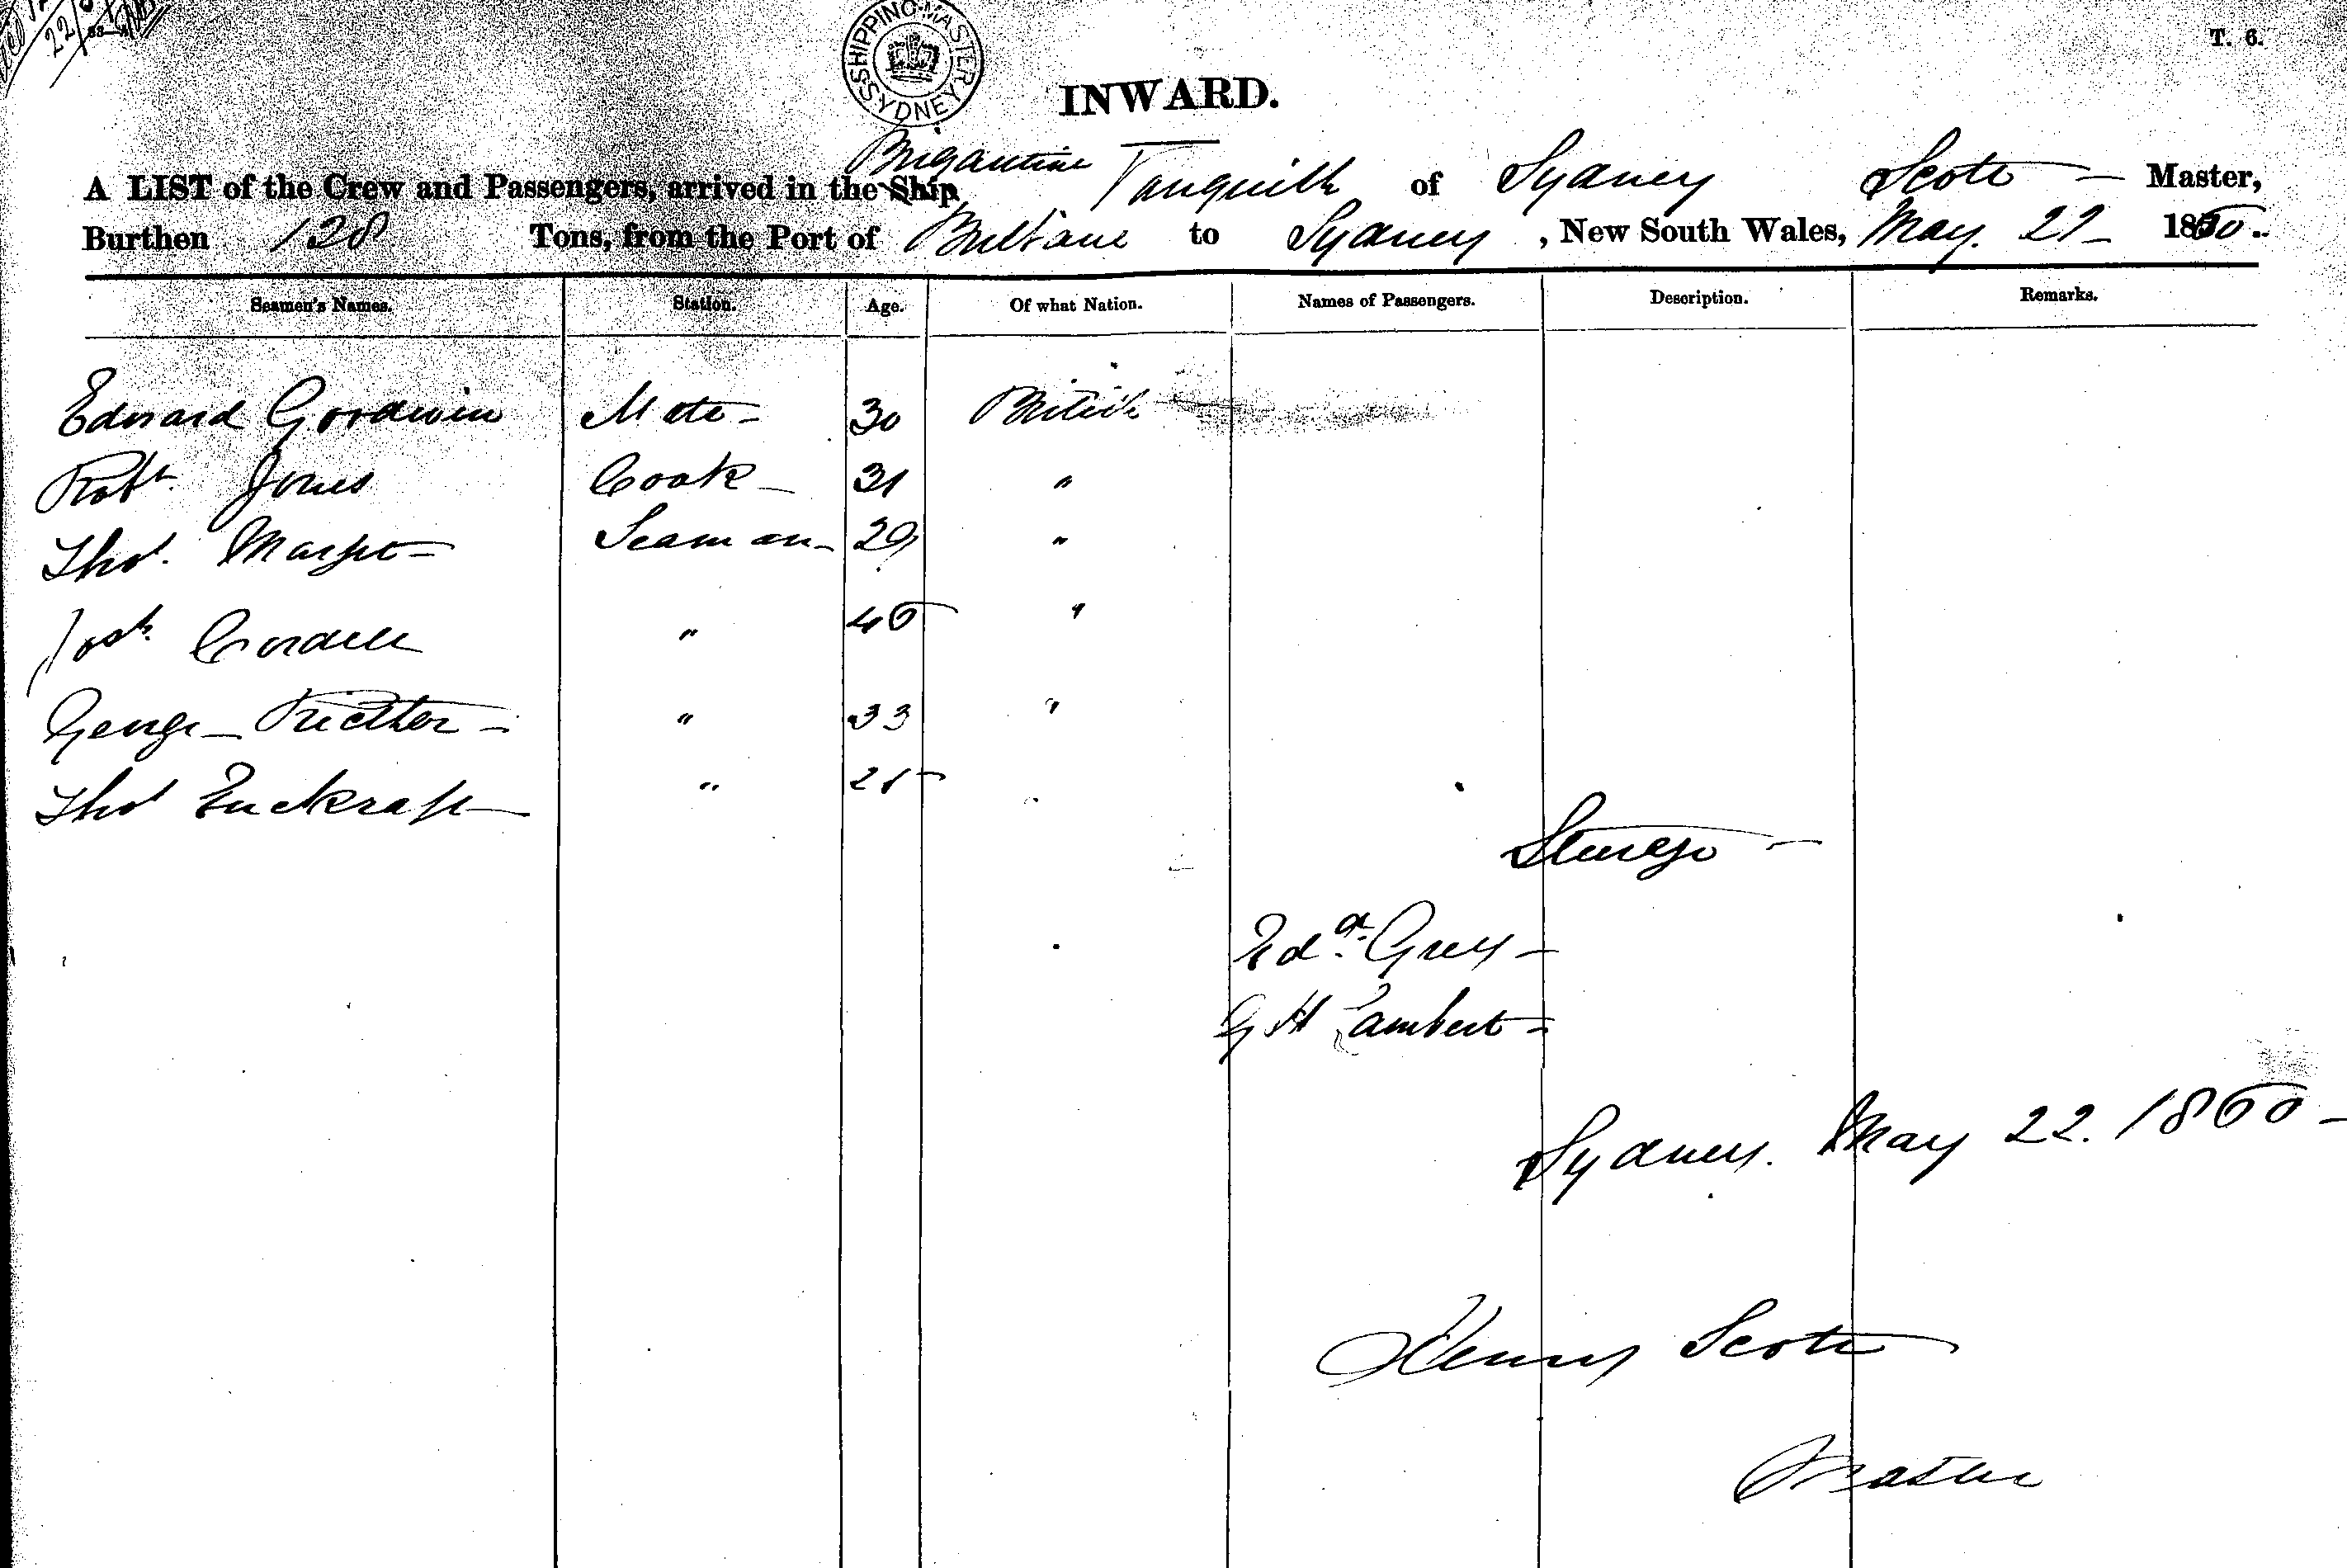 22/
SHIPPING MASTER SYDNEY
T. 6.
INWARD.
Brigantine
A LIST of the Crew and Passengers, arrived in the Ship Vanquish of Sydney Scott Master,
Burthen 128 Tons, from the Port of to Sydney, New South Wales, May. 22 1860.
Seamen's Names. Station. Age. Of what Nation. Names of Passengers. Description. Remarks.
Edward Goodwin Mate 30 British
Robt. Jones Cook 31 "
Thos. Seaman 29 "
Josh. Cordell " 46 "
George " 33 "
Thos " 25
Steerage
Edd. Grey
G H Lambert
Sydney. May 22. 1860
Henry Scott
Master